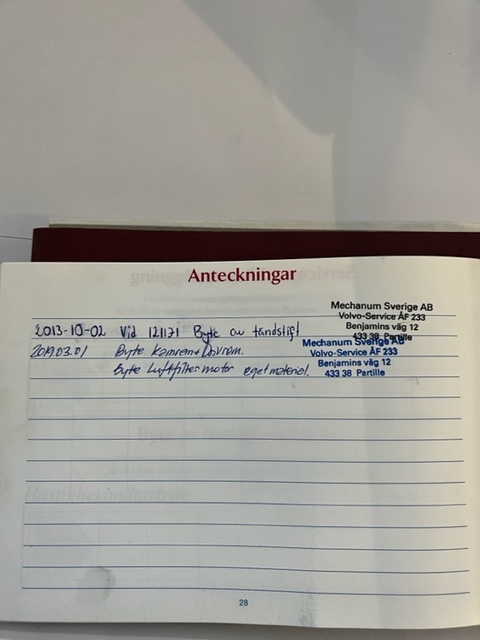 Anteckningar
Mechanum Sverige AB
Volvo-Service ÅF 233
Benjamins väg 12
433 38 Partille
2013-10-02 Vid 121171 Byte av tändstift
Mechanum Sverige AB
Volvo-Service ÅF 233
Benjamins väg 12
433 38 Partille
2019.03.01 Byte Kamrem + Drivrem.
Byte Luftfilter motor eget material.
28